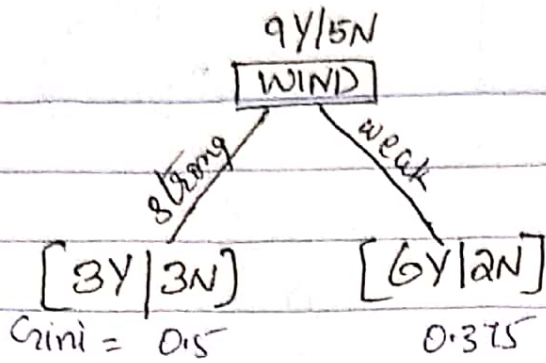 9Y/5N
WIND
strong weak
[3Y|3N] [6Y|2N]
Gini = 0.5 0.375